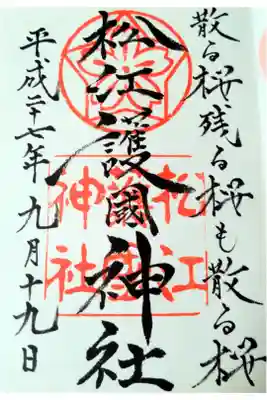 散る桜残る桜も散る桜
松江護國神社
松江
護國
神社
平成二十七年九月十九日